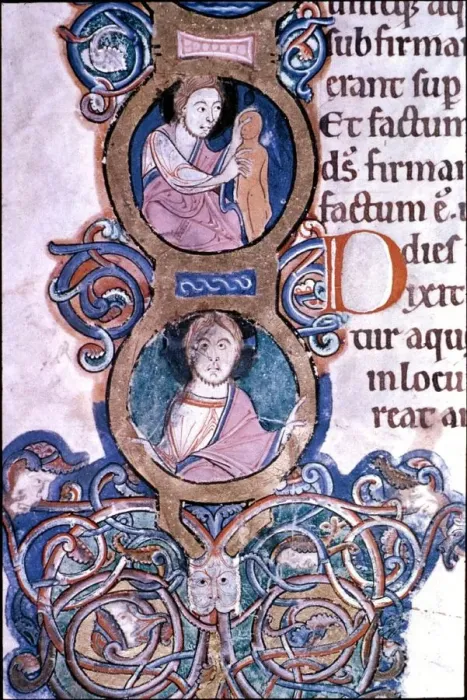 aq
sub firmam
erant sup
Et factum
ds̄ firmam
factum ē.
dies
Dixit
tur aqu
in locu
reat ar